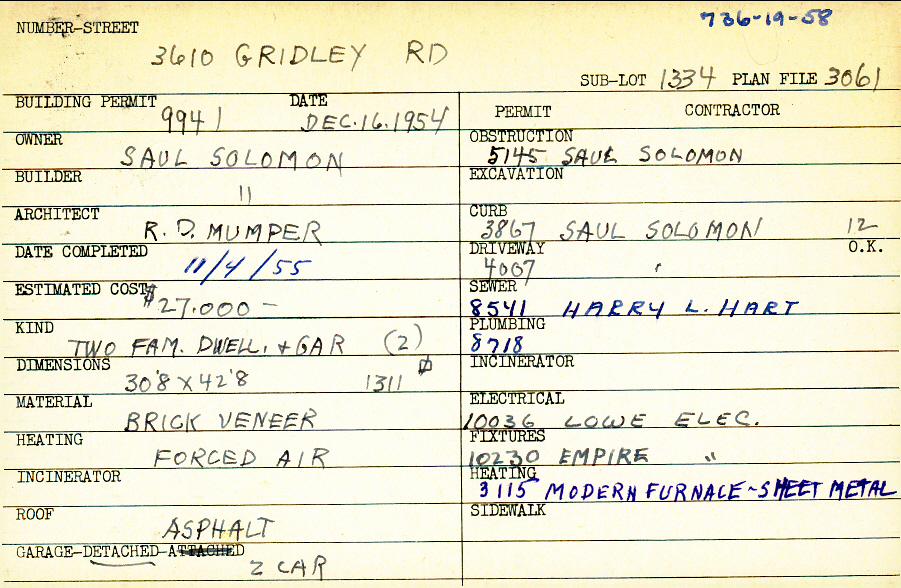 736-19-58
NUMBER-STREET
3610 GRIDLEY RD
SUB-LOT 1334 PLAN FILE 3061
BUILDING PERMIT 9941 DATE DEC. 16. 1954
OWNER SAUL SOLOMON
BUILDER "
ARCHITECT R. D. MUMPER
DATE COMPLETED 11/4/55
ESTIMATED COST $27.000 —
KIND TWO FAM. DWELL. + GAR (2)
DIMENSIONS 30'8 X 42'8 1311
MATERIAL BRICK VENEER
HEATING FORCED AIR
INCINERATOR
ROOF ASPHALT
GARAGE-DETACHED-ATTACHED 2 CAR
PERMIT CONTRACTOR
OBSTRUCTION 5145 SAUL SOLOMON
EXCAVATION
CURB 3867 SAUL SOLOMON 12
DRIVEWAY 4007 O.K.
SEWER 8541 HARRY L. HART
PLUMBING 8718
INCINERATOR
ELECTRICAL 10036 LOWE ELEC.
FIXTURES 10230 EMPIRE "
HEATING 3115 MODERN FURNACE~SHEET METAL
SIDEWALK